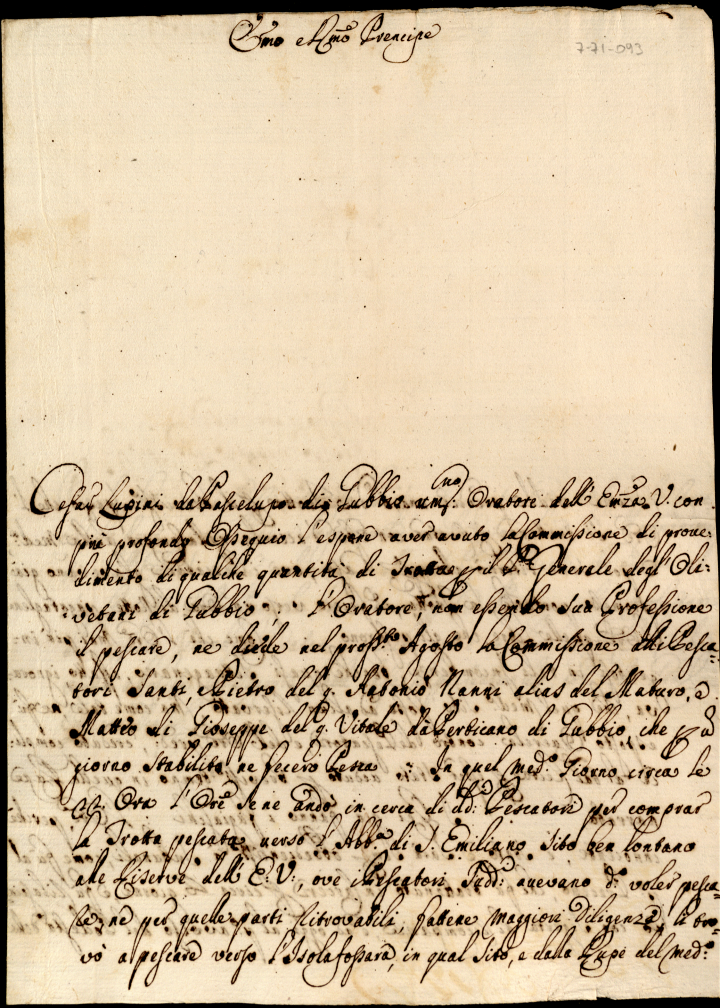 Emo e Rmo Prencipe
7-71-093
Cesare Lupini da Pascelupo di Gubbio um:no Oratore dell'Emza V. con
più profondo Ossequio l'espone aver avuto la Commissione di prove-
dimento di qualche quantità di Trotte p il Pre Generale degl'Oli-
vetani di Gubbio; l'Oratore, non essendo sua Professione
il pescare, ne diede nel prossto Agosto la Commissione alli Pesca-
tori Santi, e Pietro del q. Antonio Nanni alias del Maturo, e
Matteo di Gioseppe del q. Vitale da Perticano di Gubbio, che p il
giorno stabilito ne fecero Pesca. In quel medo Giorno circa le
22 Ora l'Ore se ne andò in cerca di dd: Pescatori per comprar
la Trotta pescata verso l'Abba di S. Emiliano sito ben lontano
alle Riserve dell'E. V., ove i Pescatori sudd: avevano do voler pesca-
re; ne per quelle parti ritrovabili, fattene maggiori diligenze, li tro-
vò a pescare verso l'Isola fossara, in qual sito, e dalla Rupe del medo